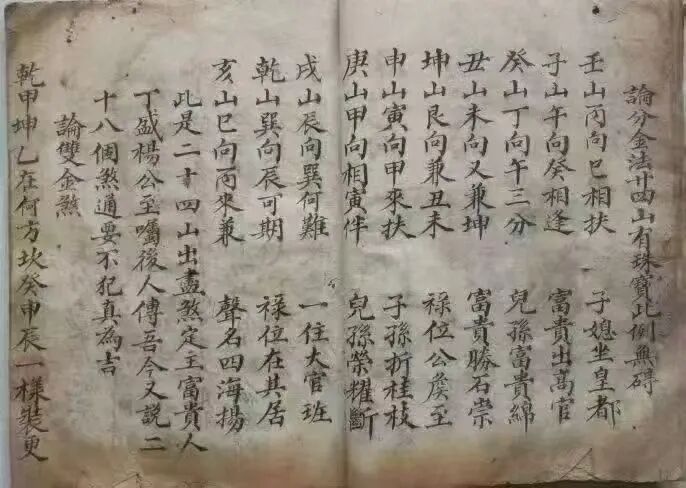 論分金法廿四山有珠寶比例無碍
壬山丙向巳相扶 子媳坐皇都
子山午向癸相逢 富貴出高官
癸山丁向午三分 兒孫富貴綿
丑山未向又兼坤 富貴勝石崇
坤山艮向兼丑未 祿位公侯至
申山寅向甲來扶 子孫折桂枝
庚山甲向相寅伴 兒孫榮耀斷
戌山辰向巽何難 一住大官班
乾山巽向辰可期 祿位在其居
亥山巳向丙來兼 聲名四海揚
此是二十四山出盡煞定主富貴人
丁盛楊公至囑後人傳吾今又説二
十八個煞通要不犯真為吉
論雙金煞
乾甲坤乙在何方坎癸申辰一樣裝更